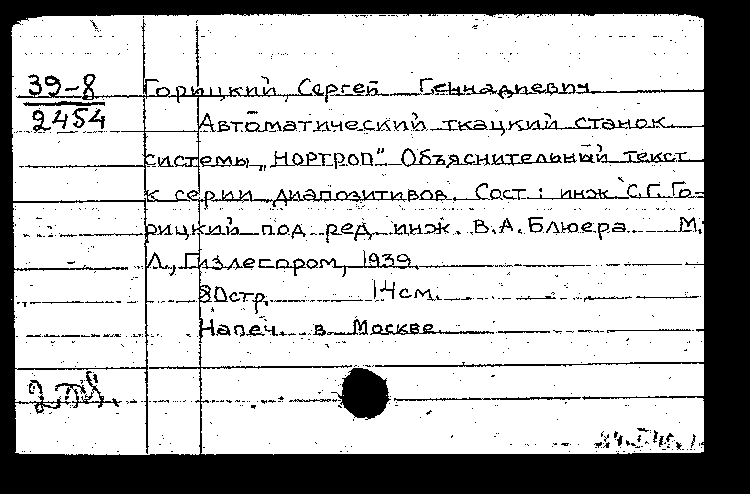 39-8
2454
Горицкий, Сергей Геннадиевич
Автоматический ткацкий станок
системы „Нортроп". Объяснительный текст
к серии диапозитивов. Сост: инж. С.Г. Го-
рицкий под ред. инж. В.А. Блюера М.
Л., Гизлегпром, 1939.
80стр. 14см.
Напеч. в Москве